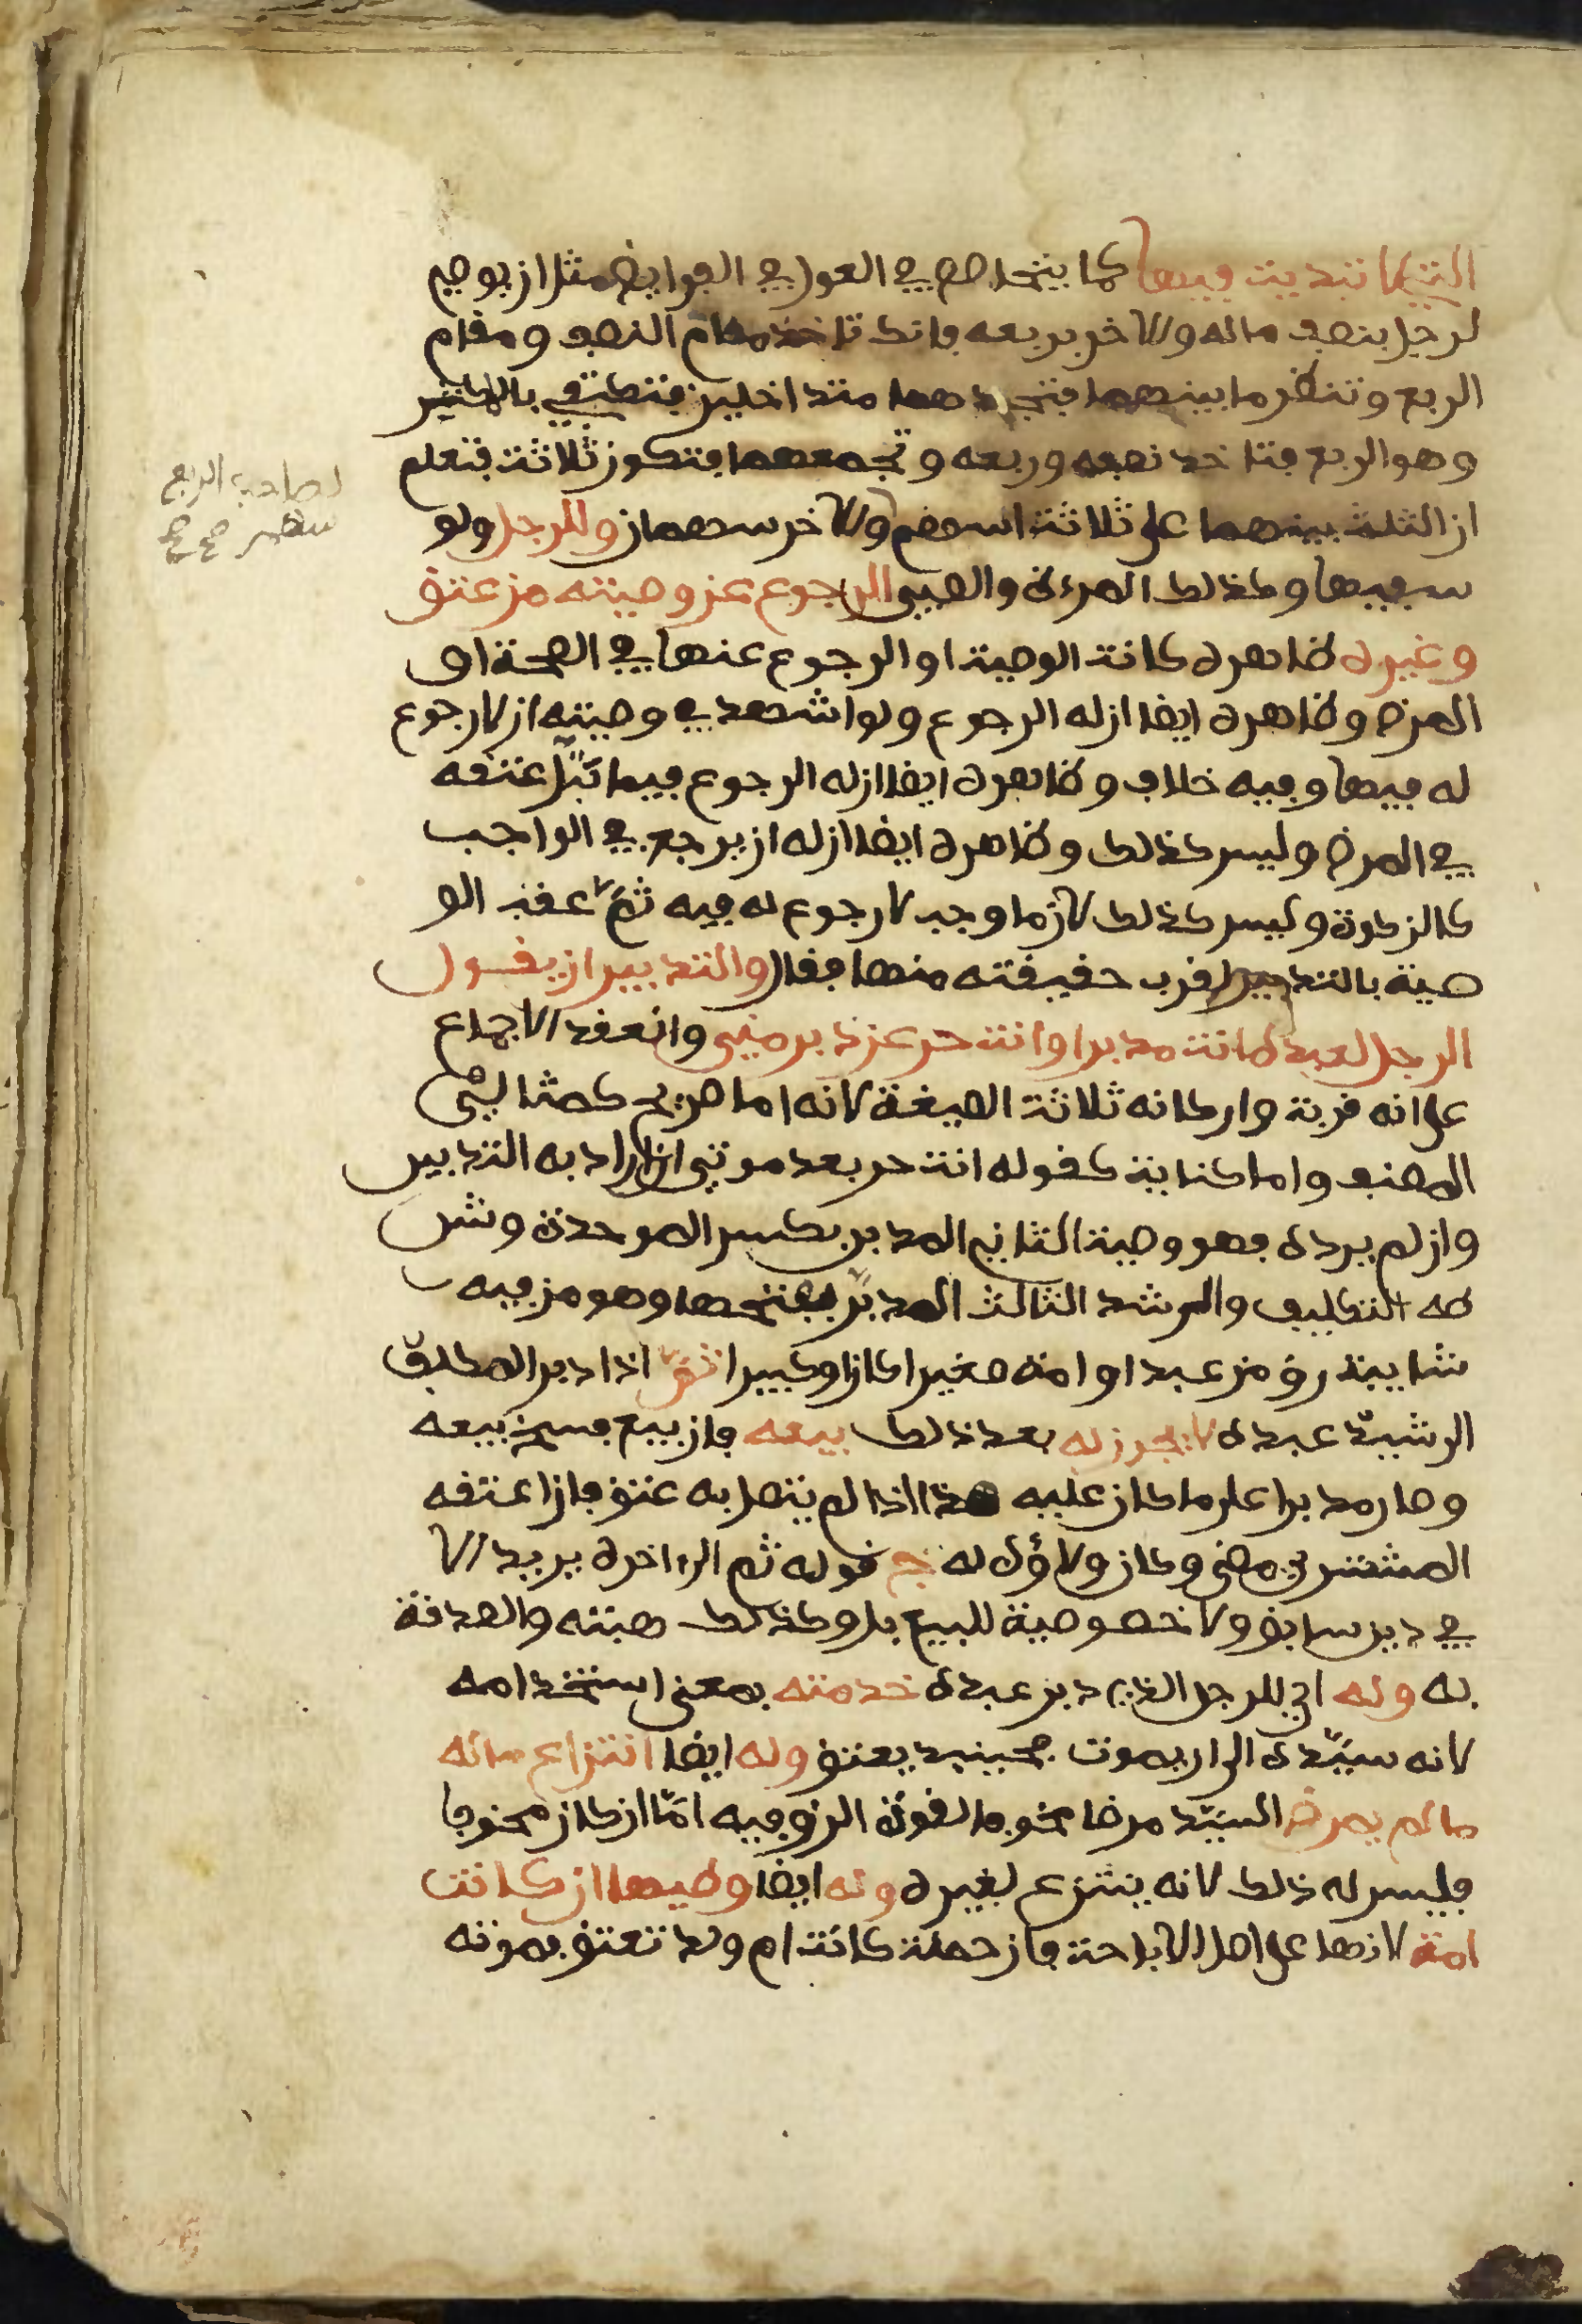 التي لا تبدية فيها كما يتحاصص في العول في الفرايض مثل ان يوصي
لرجل بنصف ماله ولآخر بربعه فانك تاخذ مقام النصف ومقام
الربع وتنظر ما بينهما فتجدهما متداخلين فتكتفي بالاكثر
وهو الربع فتاخذ نصفه وربعه وتجمعهما فتكون ثلاثة فتعلم
ان الثلث بينهما على ثلاثة اسهم ولآخر سهمان وللرجل ولو
سفيها وكذلك المرءة والصبي الرجوع عن وصيته من عتق
وغيره ظاهره كانت الوصية او الرجوع عنها في الصحة او
المرض وظاهره ايضا ان له الرجوع ولو اشهد في وصيته ان لا رجوع
له فيها وفيه خلاف وظاهره ايضا ان له الرجوع فيما بتل عتقه
في المرض وليس كذلك وظاهره ايضا ان له ان يرجع في الواجب
كالزكوة وليس كذلك لان ما وجب لا رجوع له فيه ثم عقب الو
صية بالتدبير لقرب حقيقته منها فقال والتدبير ان يقول
الرجل لعبده انت مدبر او انت حر عن دبر مني وانعقد الاجماع
على انه قربة واركانه ثلاثة الصيغة لانه اما صريح كمثالي
المصنف واما كناية كقوله انت حر بعد موتي ان اراد به التدبير
وان لم يرده فهو وصية الثاني المدبر بكسر الموحدة وشر
طه التكليف والرشد الثالث المدبر بفتحها وهو من فيه
شايبة رق من عبد او امة صغيرا كان او كبيرا ثم اذا دبر المكلف
الرشيد عبده لا يجوز له بعد ذلك بيعه فان بيع فسخ بيعه
وصار مدبرا على ما كان عليه هذا اذا لم يتصل به عتق فان اعتقه
المشتري مضى وكان ولاؤه له ج قوله ثم الى اخره يريد الا
في دين سابق ولا خصوصية للبيع بل وكذلك هبته والصدقة
به وله اي للرجل الذي دبر عبده خدمته بمعنى استخدامه
لانه سيده الى ان يموت فحينيذ يعتق وله ايضا انتزاع ماله
ما لم يمرض السيد مرضا مخوفا لقوة الرق فيه اما ان كان مخوفا
فليس له ذلك لانه ينتزع لغيره وله ايضا وطيها ان كانت
امة لانها على اصل الاباحة فان حملت كانت ام ولد تعتق بموته
لصاحب الربع
سهم صح صح